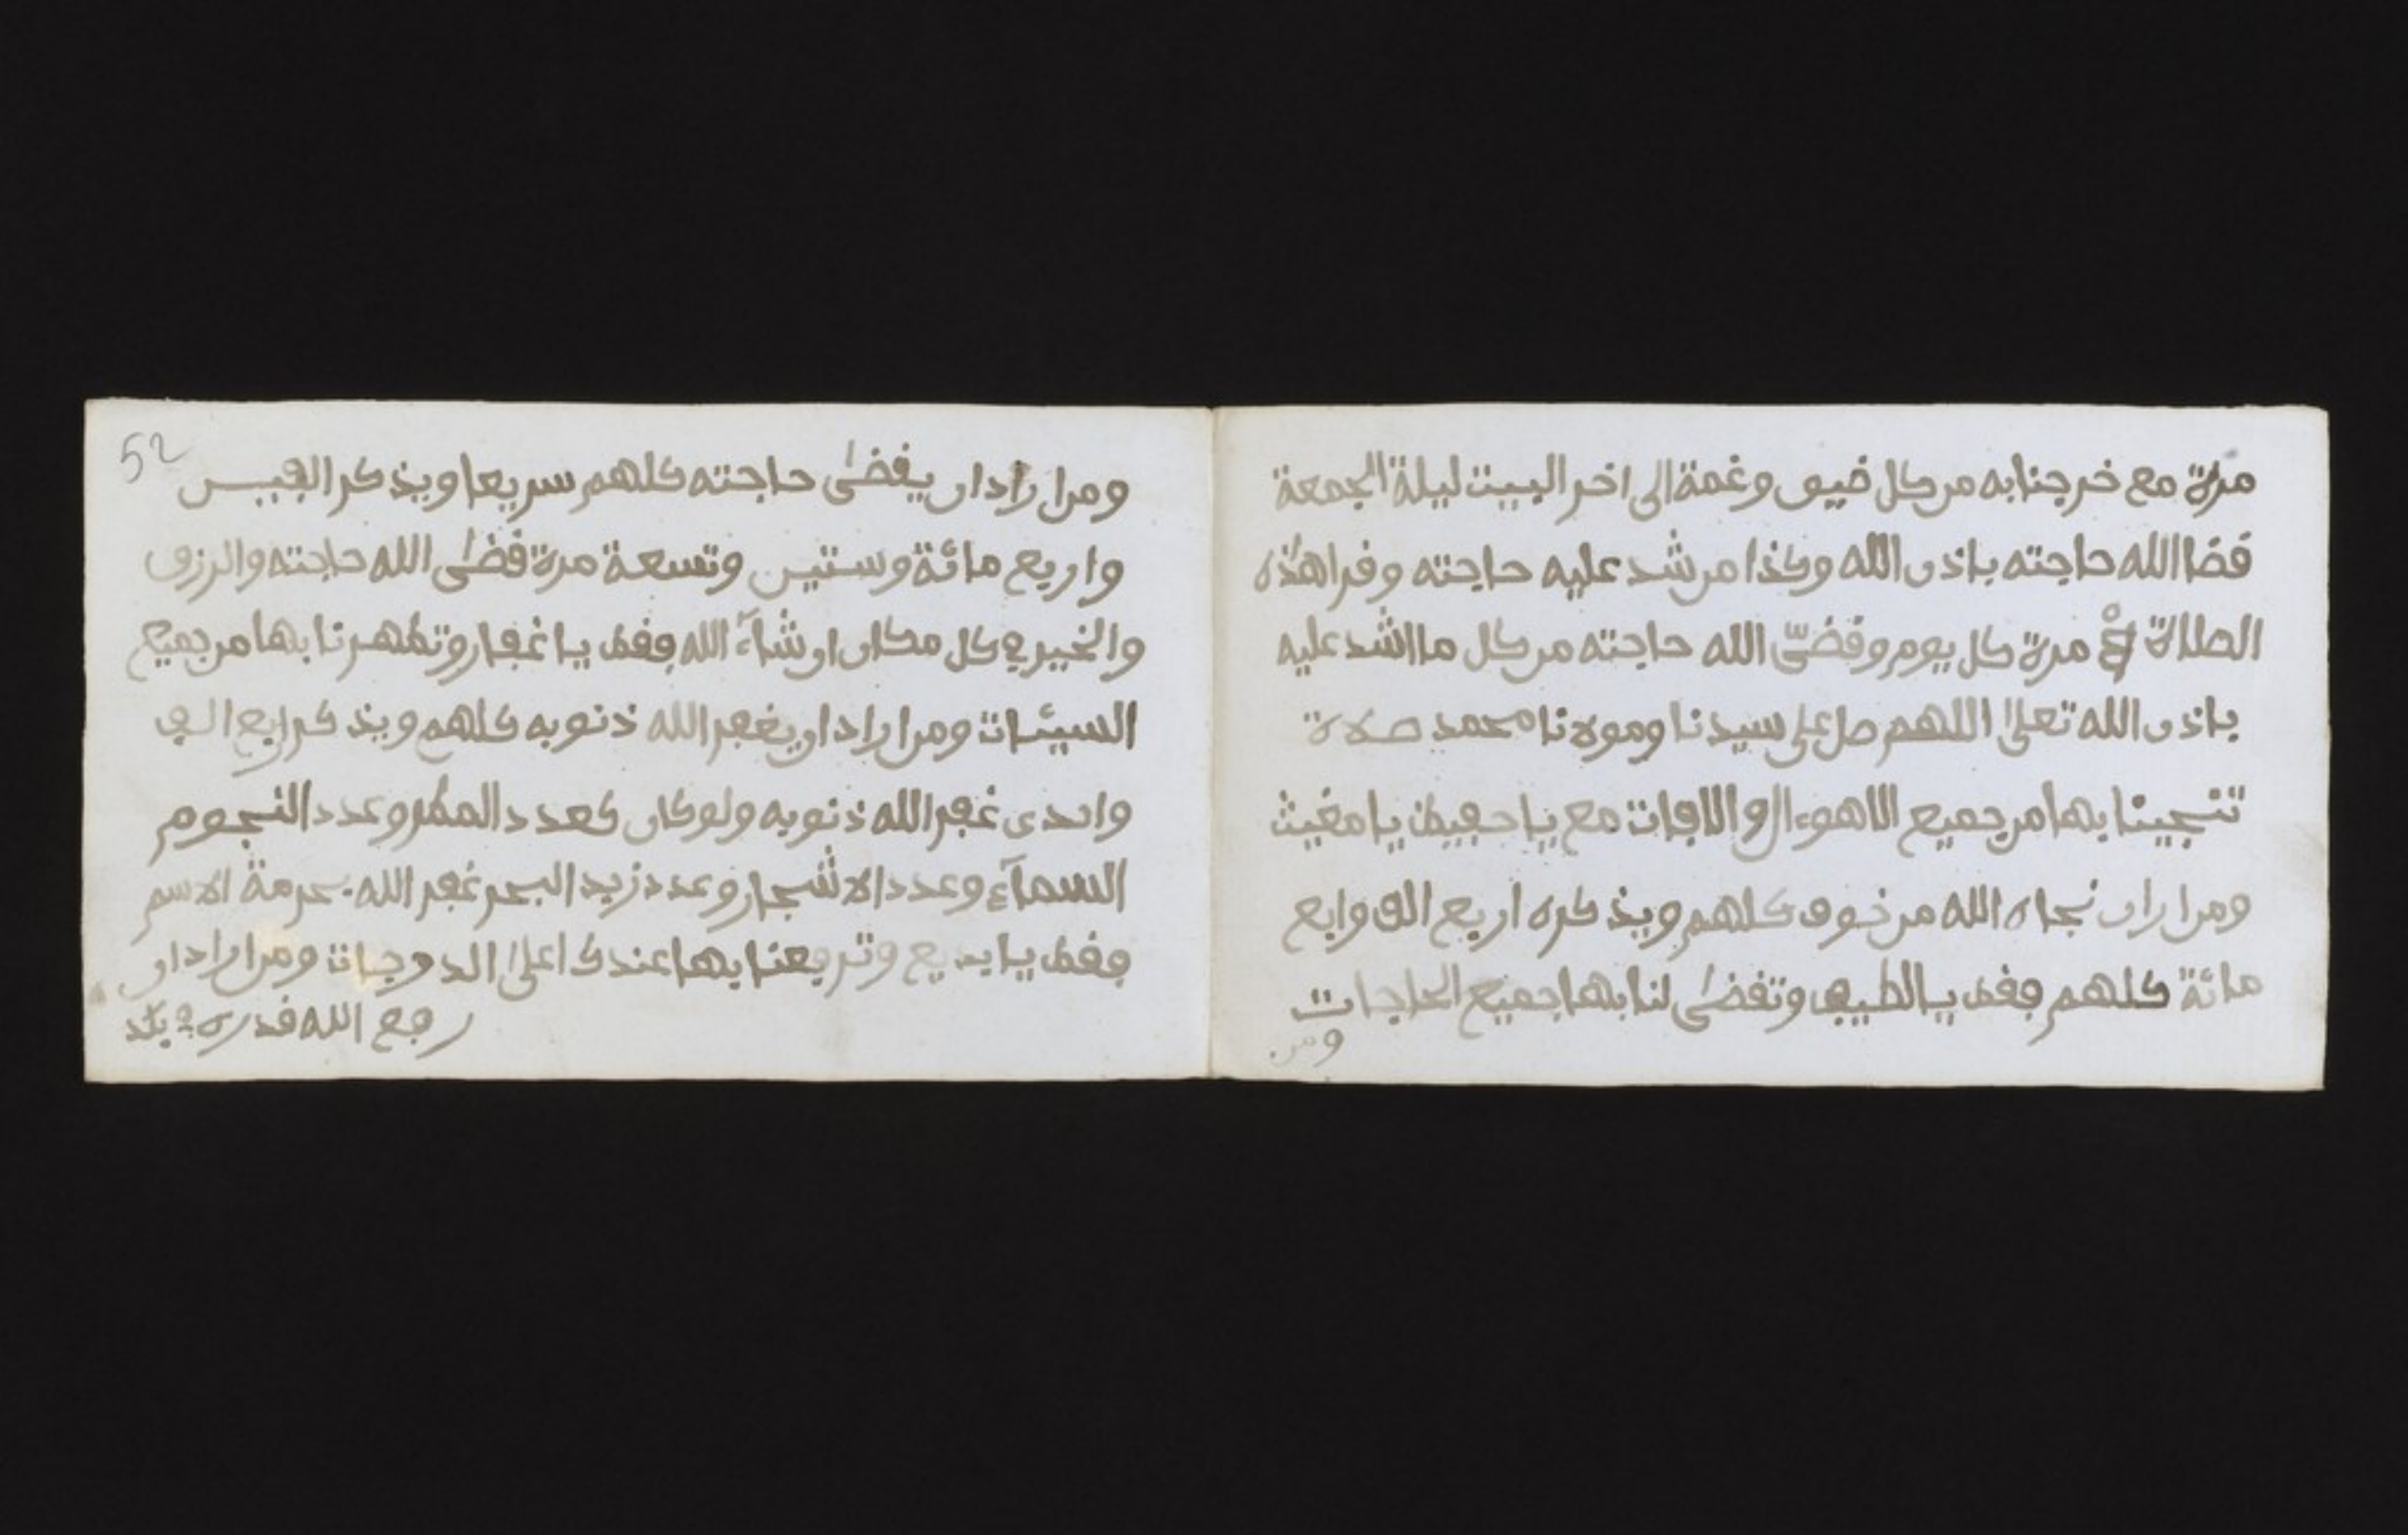 مرة مع خرجنا به من كل ضيق وغمة الى اخر البيت ليلة الجمعة
قضا الله حاجته باذن الله وكذا من شد عليه حاجته وفرا هذه
الصلاة مرة كل يوم وقضىّ الله حاجته من كل ما اشد عليه
باذن الله تعلى اللهم صل على سيدنا ومولانا محمد صلاة
تنجينا بها من جميع الاهوءال والافات مع يا حفيظ يا مغيث
ومن اران نجاه الله من خوف كلهم ويذكره اربع الف وابع
مائة كلهم فقط يا لطيف وتقضى لنا بها جميع الحاجات
ومن
52
ومن اراد ان يقضى حاجته كلهم سريعا ويذكر الفيس
واربع مائة وستين وتسعة مرة قضى الله حاجته والرزق
والخير في كل مكان ان شاء الله فقط يا غفار وتطهرنا بها من جميع
السيئات ومن اراد ان يغفر الله ذنوبه كلهم ويذكر ابع الف
واحدى غفر الله ذنوبه ولو كان كعدد المطر وعدد النجوم
السماء وعدد الاشجار وعدد زبد البحر غفر الله بحرمة الاسم
فقط يا بديع وترفعنا بها عندك اعلى الدوجات ومن اراد ان
رفع الله قدره في بلد